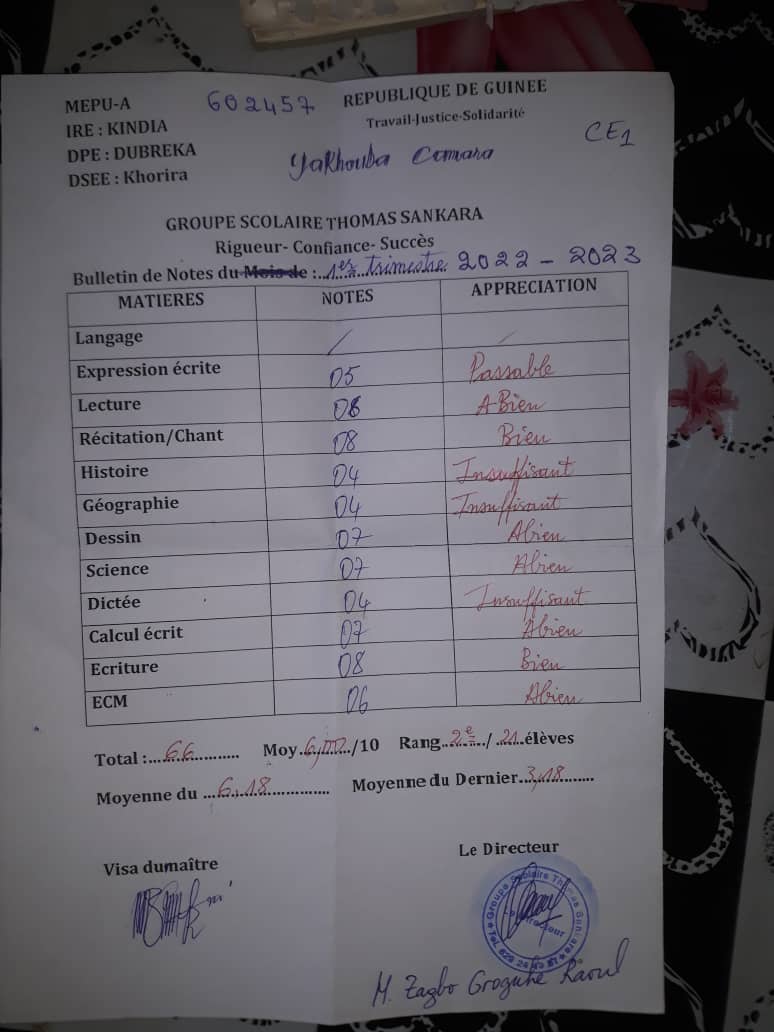 MEPU-A 602457 REPUBLIQUE DE GUINEE
IRE : KINDIA Travail-Justice-Solidarité
DPE : DUBREKA CE1
DSEE : Khorira Yakhouba Camara
GROUPE SCOLAIRE THOMAS SANKARA
Rigueur- Confiance- Succès
Bulletin de Notes du Mois de :..1er trimestre 2022 - 2023
MATIERES NOTES APPRECIATION
Langage / /
Expression écrite 05 Passable
Lecture 06 ABien
Récitation/Chant 08 Bien
Histoire 04 Insuffisant
Géographie 04 Insuffisant
Dessin 07 Abien
Science 07 Abien
Dictée 04 Insuffisant
Calcul écrit 07 Abien
Ecriture 08 Bien
ECM 06 Abien
Total :...66............ Moy.6,00./10 Rang..2e../..21..élèves
Moyenne du ...6,18............ Moyenne du Dernier.3,18.........
Visa dumaître Le Directeur
Groupe Scolaire Thomas Sankara
Le Directeur
M. Zagbo Groguhé Raoul